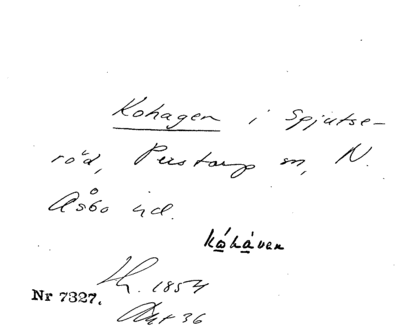 Kohagen i Spjutse-
röd, Perstorp sn, N.
Åsbo hd.
kåhåven
Lh. 1854
Nr 7327.
Akt 36